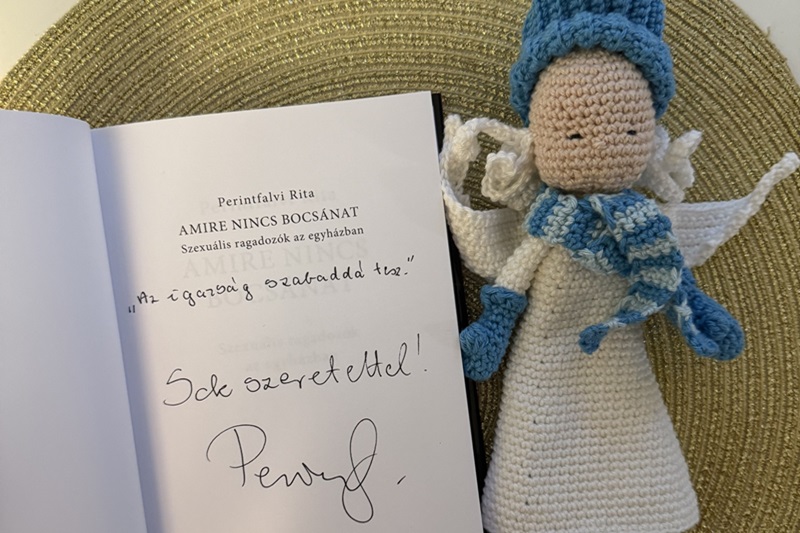 Perintfalvi Rita
AMIRE NINCS BOCSÁNAT
Szexuális ragadozók az egyházban
„Az igazság szabaddá tesz.”
Sok szeretettel!